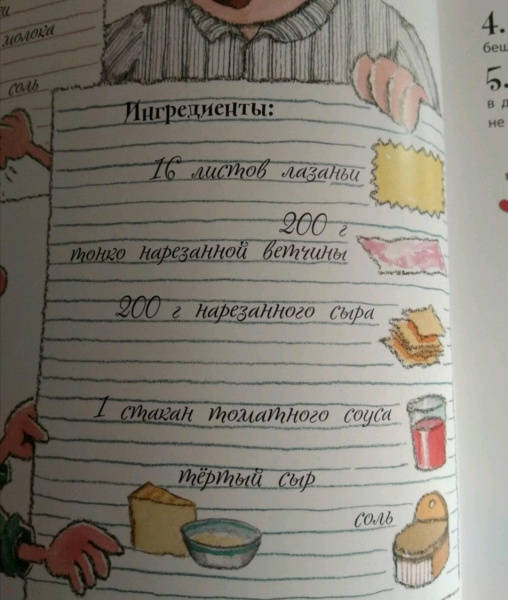 молока
соль
4.
беш
5.
в д
не
Ингредиенты:
16 листов лазаньи
200 г
тонко нарезанной ветчины
200 г нарезанного сыра
1 стакан томатного соуса
тёртый сыр
соль